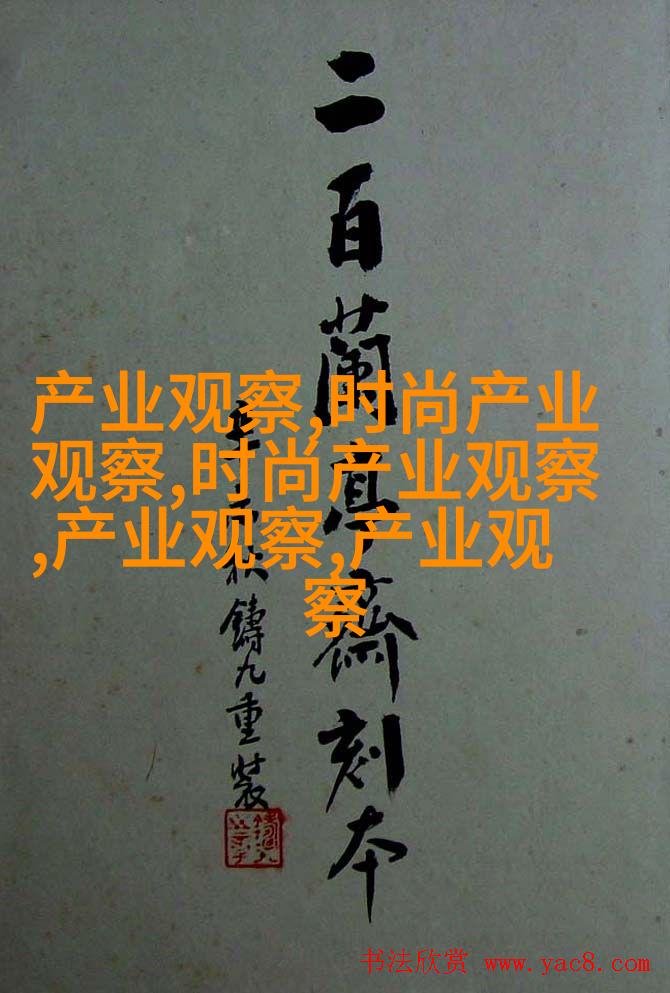 二百蘭亭齋刻本
秋鑄九重裝
产业观察,时尚产业
观察,时尚产业观察
,产业观察,产业观
察
书法欣赏 www.yac8.com